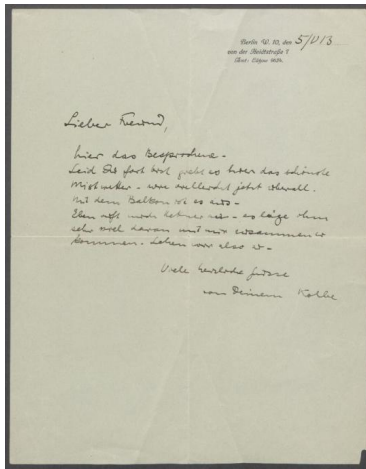 Berlin W. 10, den 5/VI 13
von der Heidtstraße 7
Lieber Freund,
hier das Besprochene –
Seid Ihr fort so das schönste
Mistwetter – wie vielleicht jetzt überall.
Mit dem Balkon ist es aus –
Eben es läge ihm
sehr viel daran mit mir zusammen zu
kommen. Sehen wir also zu –
Viele herzliche Grüsse
von Deinem Kolbe